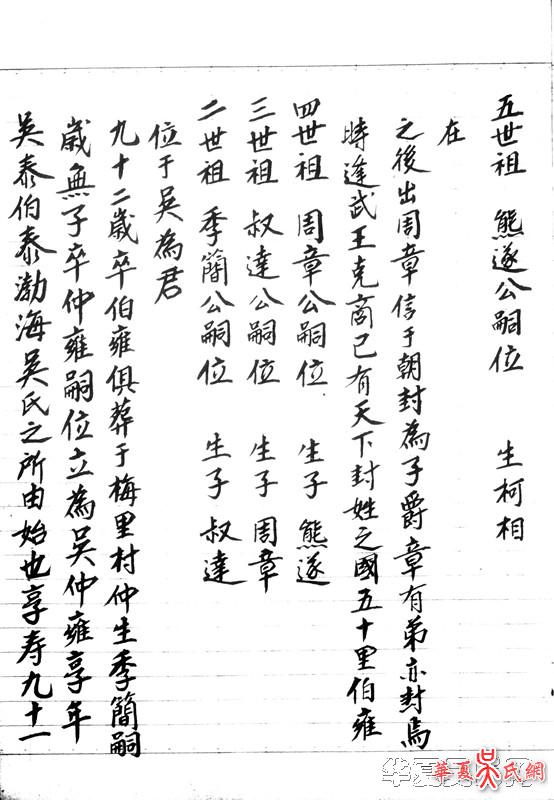 吳泰伯泰渤海吳氏之所由始也享寿九十一
歲無子卒仲雍嗣位立為吳仲雍享年
九十二歲卒伯雍俱葬于梅里村仲生季簡嗣
位于吳為君
二世祖 季簡公嗣位 生子 叔達
三世祖 叔達公嗣位 生子 周章
四世祖 周章公嗣位 生子 熊遂
時逢武王克商已有天下封姓之國五十里伯雍
之後出周章信于朝封為子爵章有弟亦封焉
在
五世祖 熊遂公嗣位 生柯相
華夏吳氏網